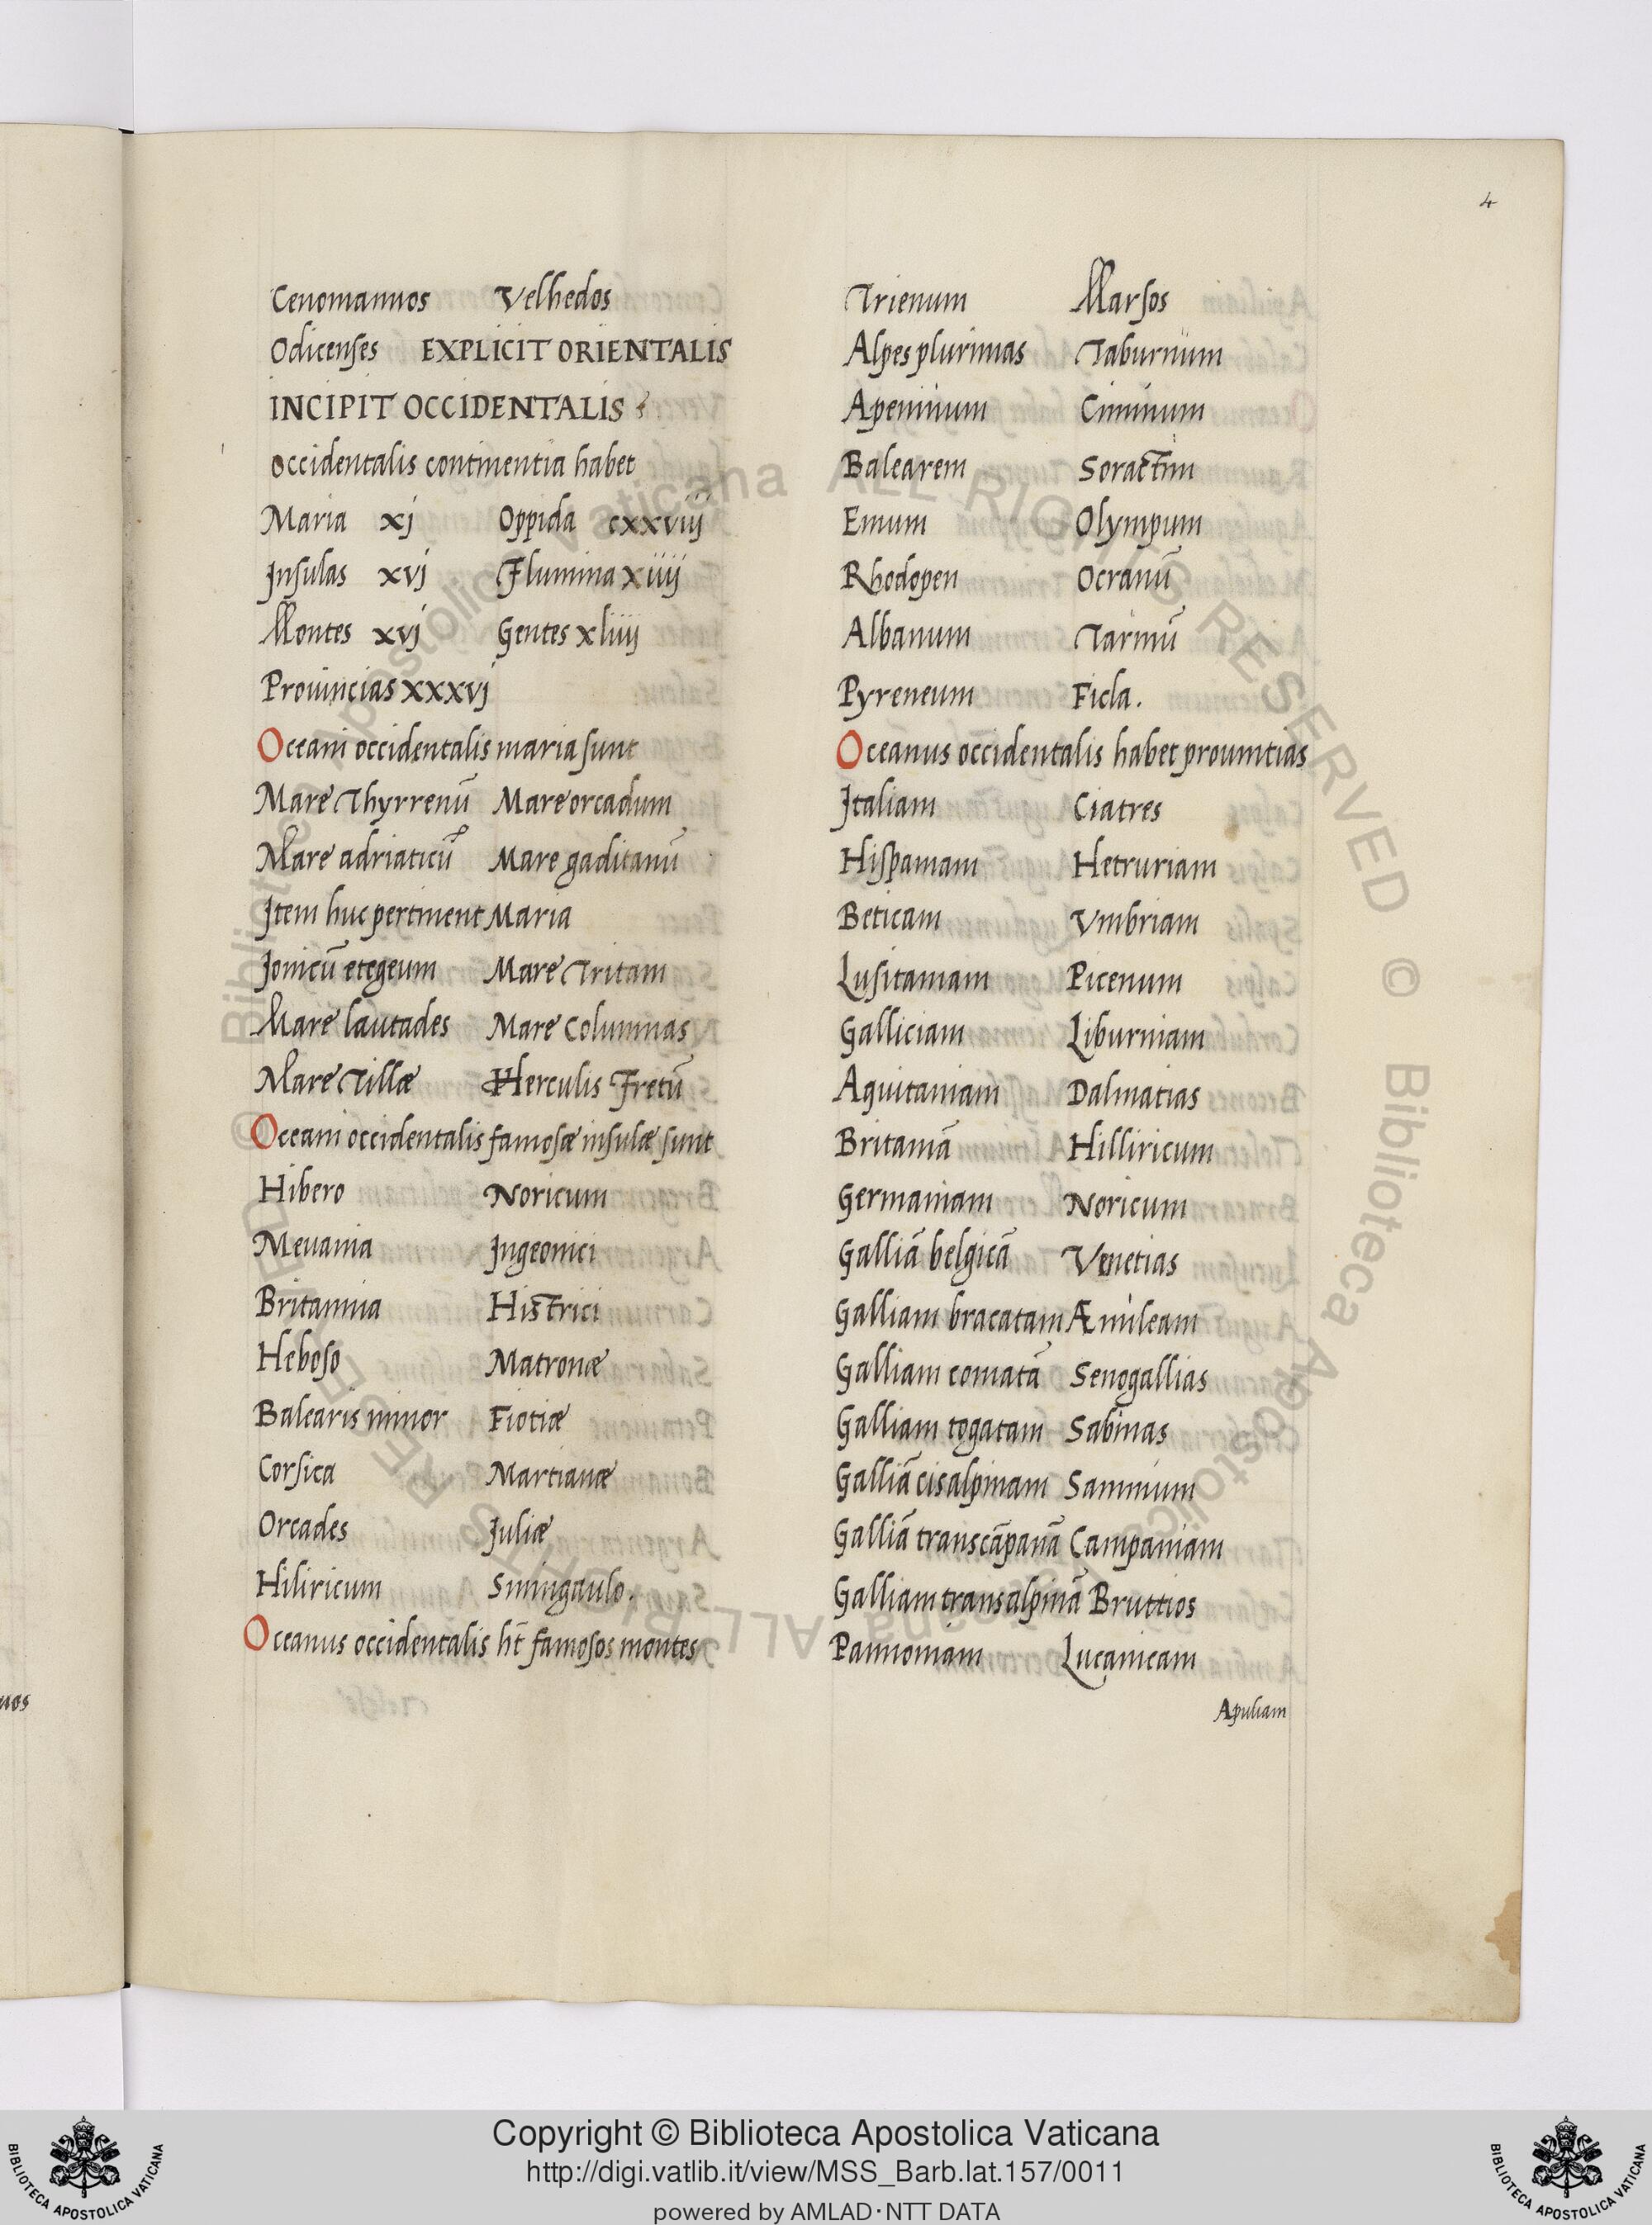 4
Cenomannos Velhedos
Odicenses EXPLICIT ORIENTALIS
INCIPIT OCCIDENTALIS
occidentalis continentia habet
Maria xj Oppida cxxviij
Insulas xvj Flumina xiiij
Montes xvj Gentes xliiij
Prouincias xxxvj
Oceani occidentalis maria sunt
Mare Thyrrenū Mare orcadum
Mare adriaticū Mare gaditanū
Item huc pertinent Maria
Jonicū etegeum Mare Tritam
Mare lautades Mare Columnas
Mare Tillæ Herculis Fretū
Oceani occidentalis famosæ insulæ sunt
Hibero Noricum
Meuania Ingeonici
Britannia Histrici
Heboso Matronæ
Balearis minor Fiotiæ
Corsica Martianæ
Orcades Juliæ
Hiliricum Siningaulo.
Oceanus occidentalis ht̄ famosos montes
Trienum Marsos
Alpes plurimas Taburnum
Apeninum Ciminum
Balearem Soractim
Emum Olympum
Rhodopen Ocranū
Albanum Tarmū
Pyreneum Ficla.
Oceanus occidentalis habet prouintias
Italiam Ciatres
Hispaniam Hetruriam
Beticam Vmbriam
Lusitaniam Picenum
Galliciam Liburniam
Aquitaniam Dalmatias
Britaniā Hilliricum
Germaniam Noricum
Galliā belgicā Venetias
Galliam bracatam Æmileam
Galliam comatā Senogallias
Galliam togatam Sabinas
Galliā cisalpinam Samnium
Galliā transcāpanā Campaniam
Galliam transalpinā Bruttios
Pannoniam Lucanicam
Apuliam
Copyright © Biblioteca Apostolica Vaticana
http://digi.vatlib.it/view/MSS_Barb.lat.157/0011
powered by AMLAD·NTT DATA
BIBLIOTECA APOSTOLICA VATICANA
BIBLIOTECA APOSTOLICA VATICANA